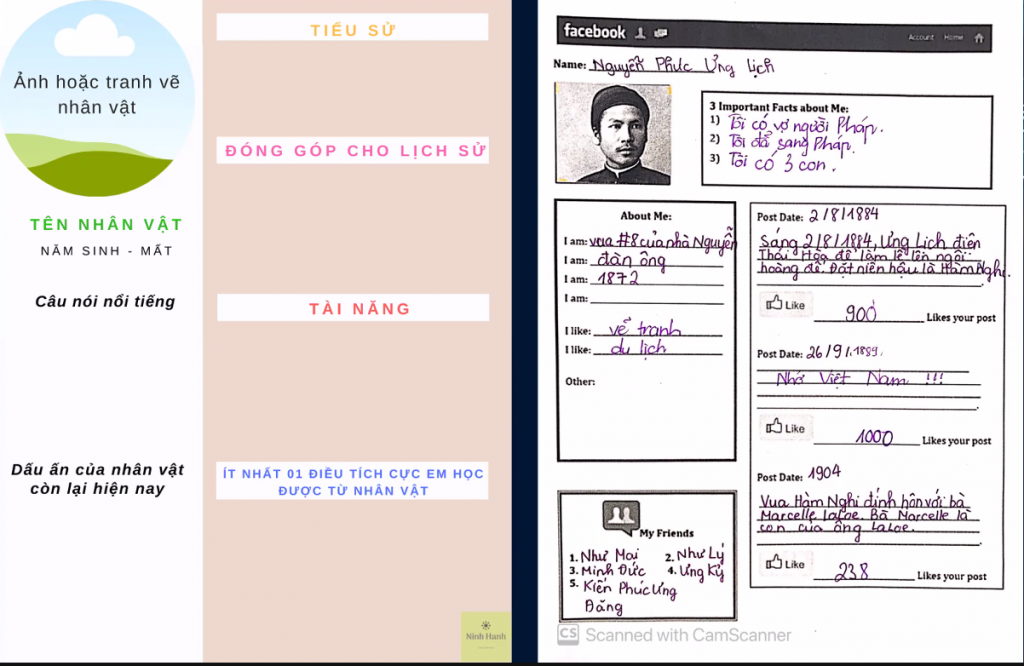 Ảnh hoặc tranh vẽ
nhân vật
TÊN NHÂN VẬT
NĂM SINH - MẤT
Câu nói nổi tiếng
Dấu ấn của nhân vật
còn lại hiện nay
TIỂU SỬ
ĐÓNG GÓP CHO LỊCH SỬ
TÀI NĂNG
ÍT NHẤT 01 ĐIỀU TÍCH CỰC EM HỌC
ĐƯỢC TỪ NHÂN VẬT
Ninh Hanh
facebook
Account Home
Name: Nguyễn Phúc Ưng Lịch
3 Important Facts about Me:
1) Tôi có vợ người Pháp.
2) Tôi đã sang Pháp.
3) Tôi có 3 con.
About Me:
I am: vua #8 của nhà Nguyễn
I am: đàn ông
I am: 1872
I am:
I like: vẽ tranh
I like: du lịch
Other:
My Friends
1. Như Mai 2. Như Lý
3. Minh Đức 4. Ưng Kỷ
5. Kiến Phúc Ưng
Đăng
Post Date: 2/8/1884
Sáng 2/8/1884, Ưng Lịch điện
Thái Hòa để làm lễ lên ngôi
hoàng đế. Đặt niên hậu là Hàm Nghi.
Like 900 Likes your post
Post Date: 26/9/1889.
Nhớ Việt Nam !!!
Like 1000 Likes your post
Post Date: 1904
Vua Hàm Nghi đính hôn với bà
Marcelle Laloe. Bà Marcelle là
con của ông Laloe.
Like 238 Likes your post
CS Scanned with CamScanner